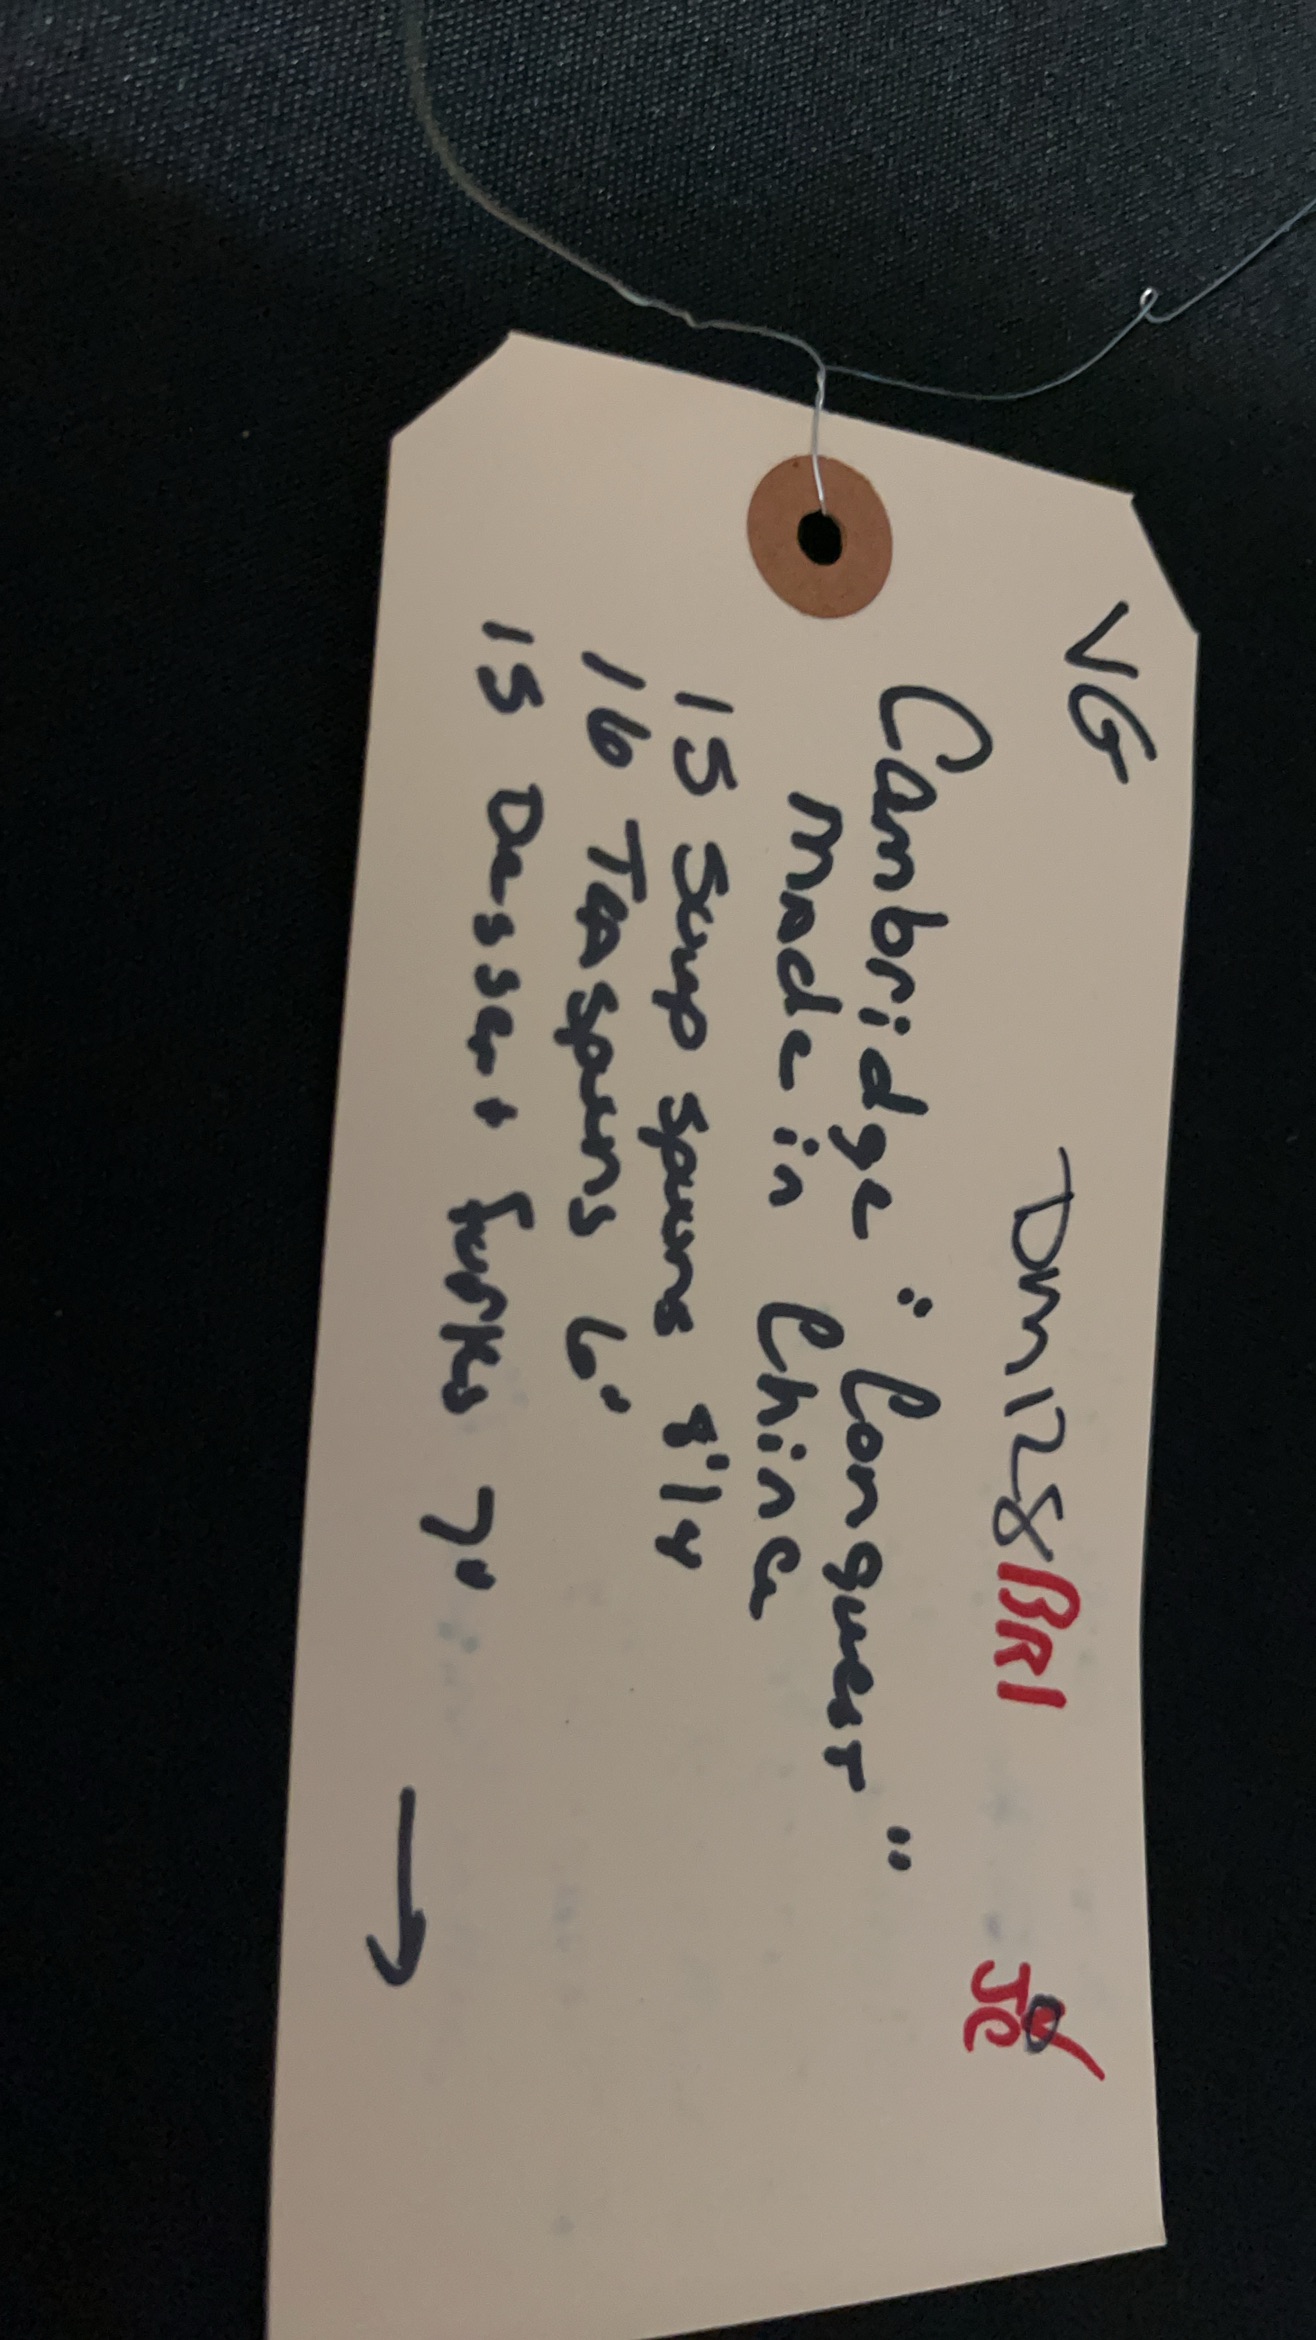 VG DM128BRI JC
Cambridge "Conquest"
Made in China
15 Soup spoons 8"1/4
16 TEASpoons 6"
15 Dessert forks 7"
→